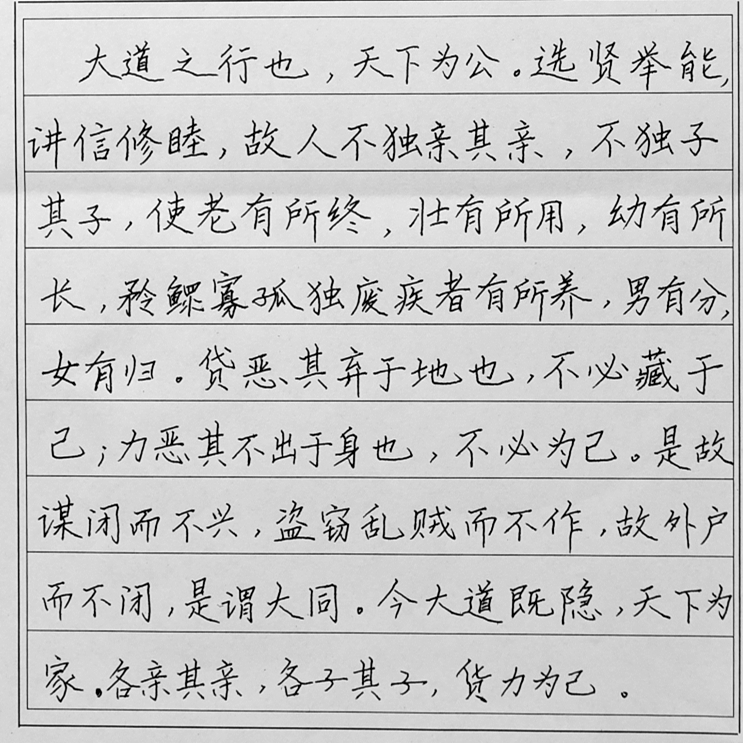 大道之行也，天下为公。选贤举能，
讲信修睦，故人不独亲其亲，不独子
其子，使老有所终，壮有所用，幼有所
长，矜鳏寡孤独废疾者有所养，男有分，
女有归。贷恶其弃于地也，不必藏于
己；力恶其不出于身也，不必为己。是故
谋闭而不兴，盗窃乱贼而不作，故外户
而不闭，是谓大同。今大道既隐，天下为
家。各亲其亲，各子其子，货力为己。